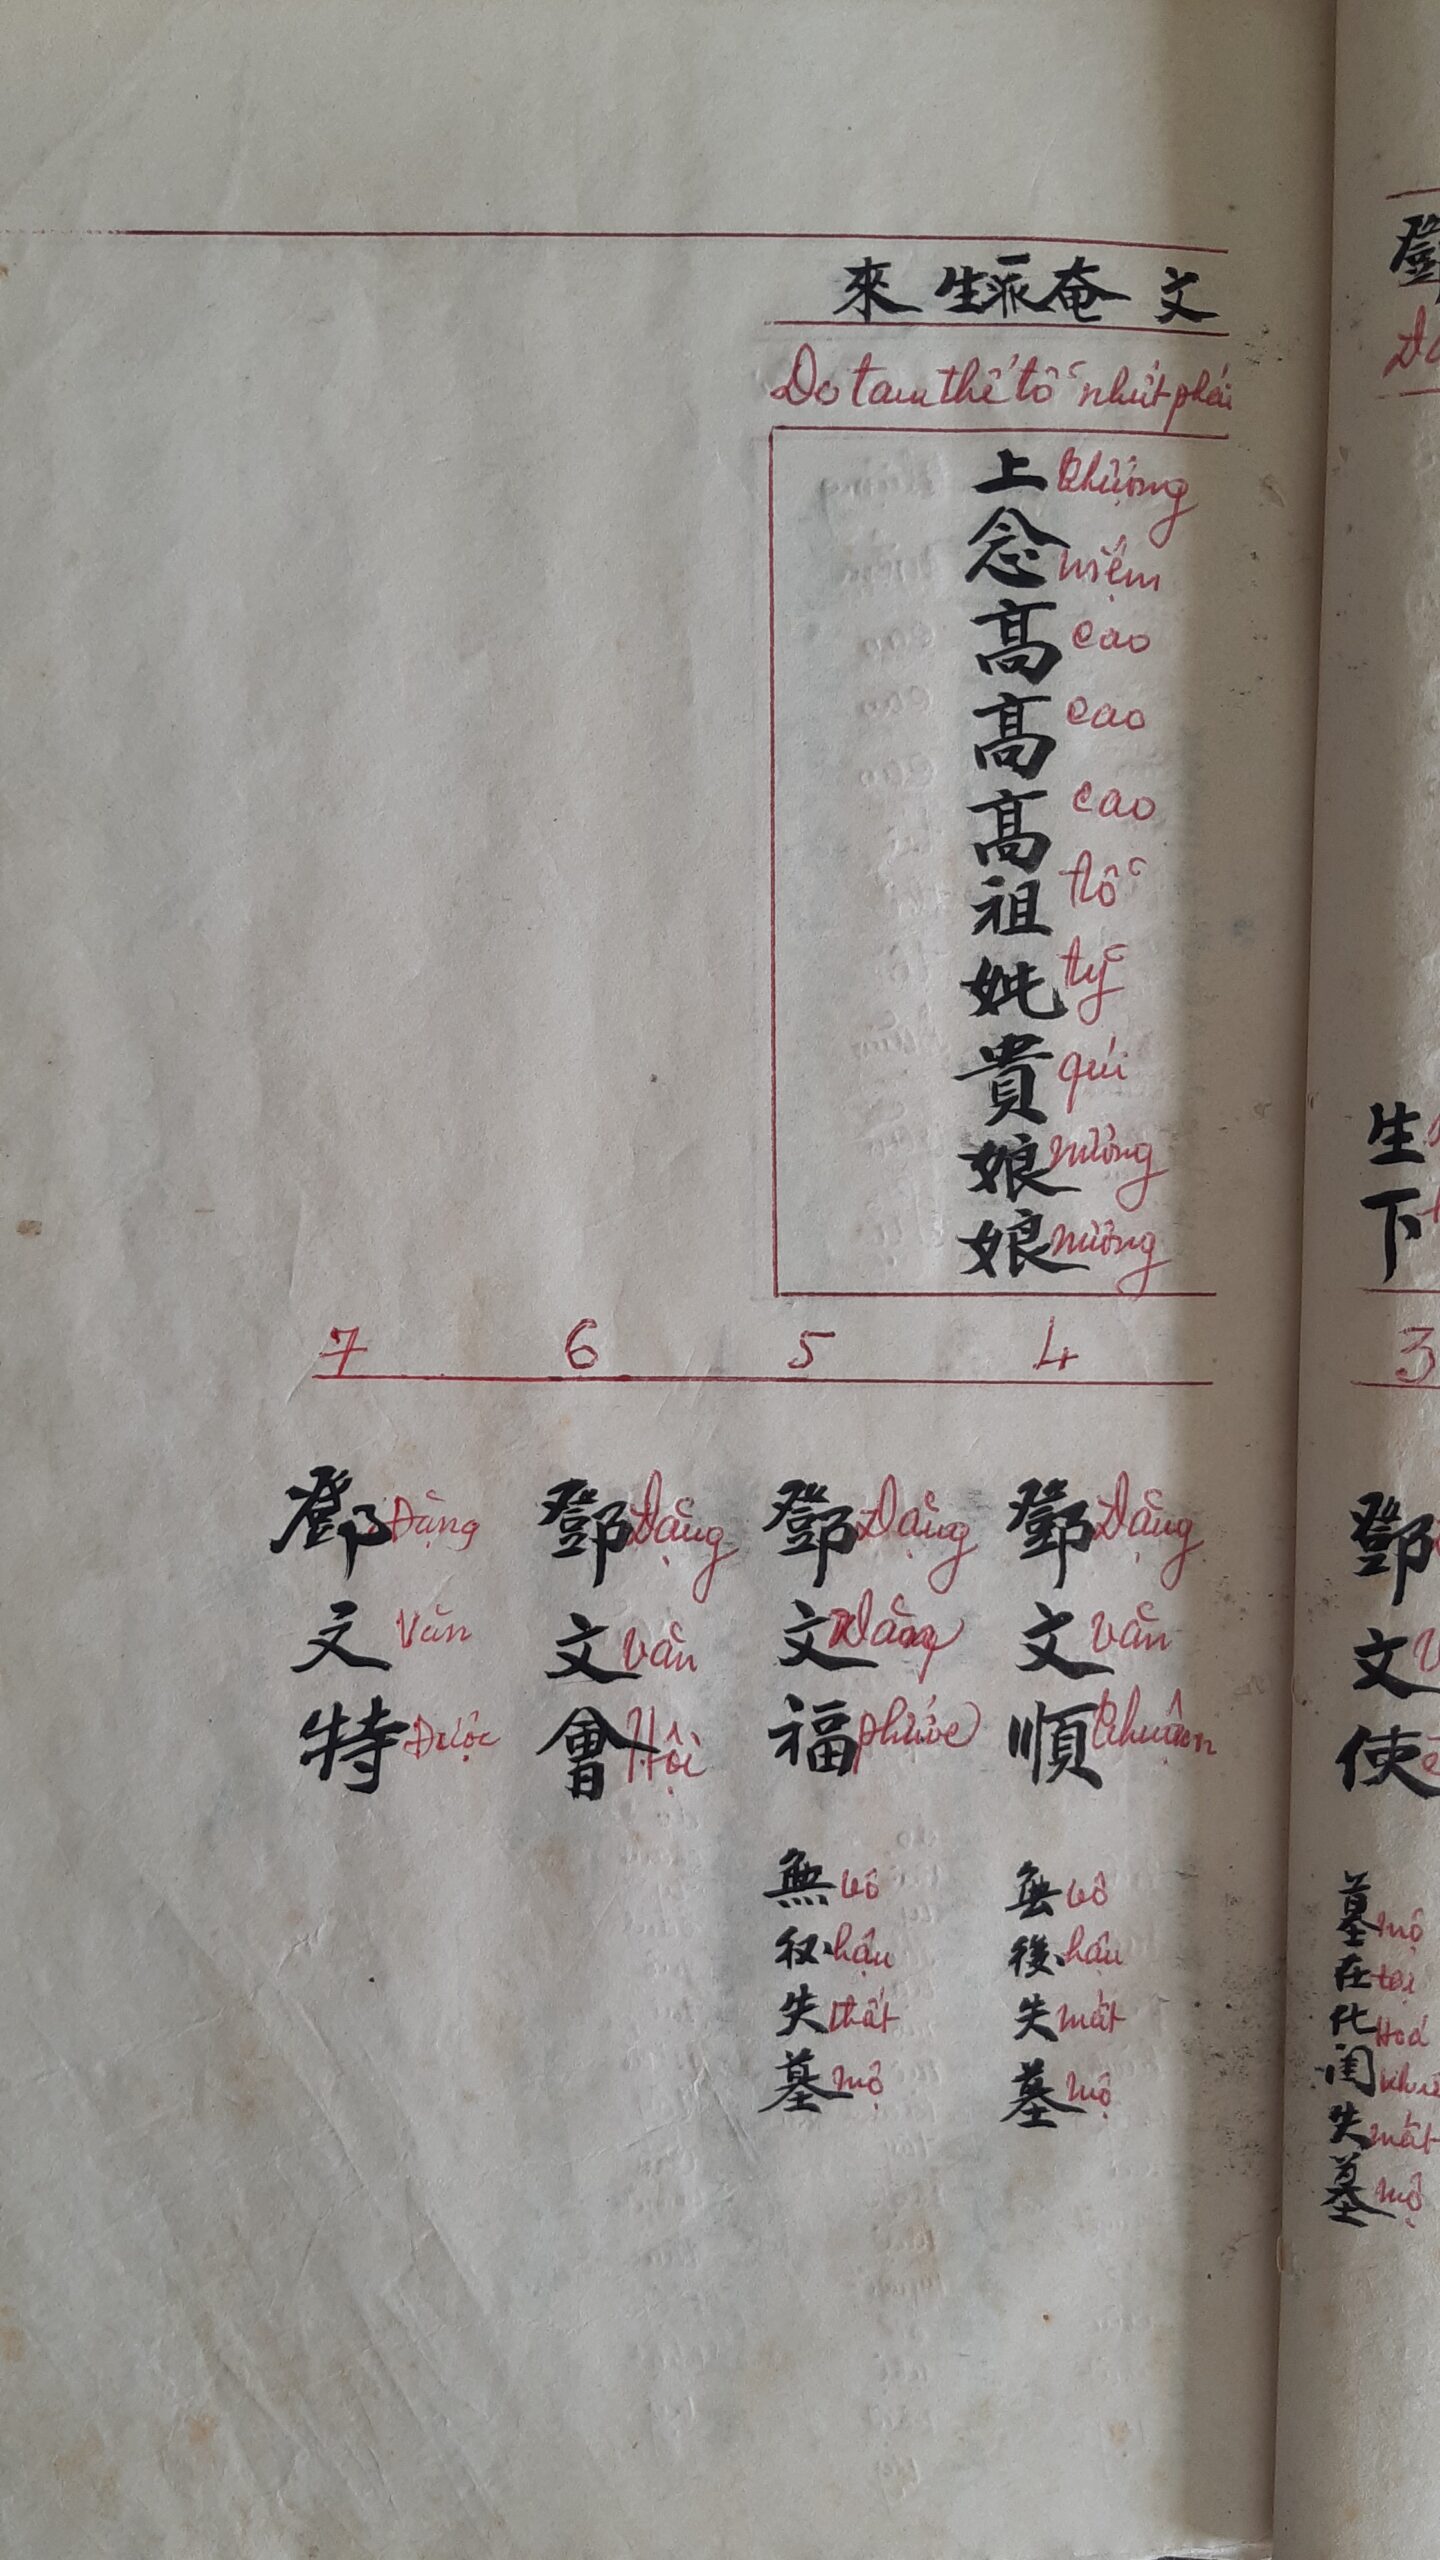 來 生派奄 文
Do tam thế tổ nhứt phái
上 thượng
念 niệm
高 cao
高 cao
高 cao
祖 tổ
妣 tỷ
貴 quí
娘 nương
娘 nương
7 6 5 4
鄧 Đặng 鄧 Đặng 鄧 Đặng 鄧 Đặng
文 Văn 文 văn 文 văn
特 Được 會 Hội 福 phước 順 thuận
無 vô 無 vô
hậu 後 hậu
失 thất 失 mất
墓 mộ 墓 mộ
生
下
3
鄧
文
使
墓 mộ
在 tại
化 Hoá
閨
失 mất
墓 mộ